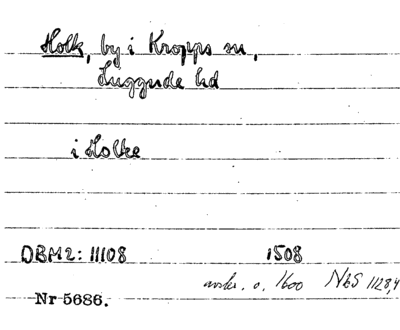 Holk, by i Kropps sn,
Luggude hd
i Holke
DBM2: 11108 1508
avskr. o. 1600 NbS 1128,4
Nr 5686.